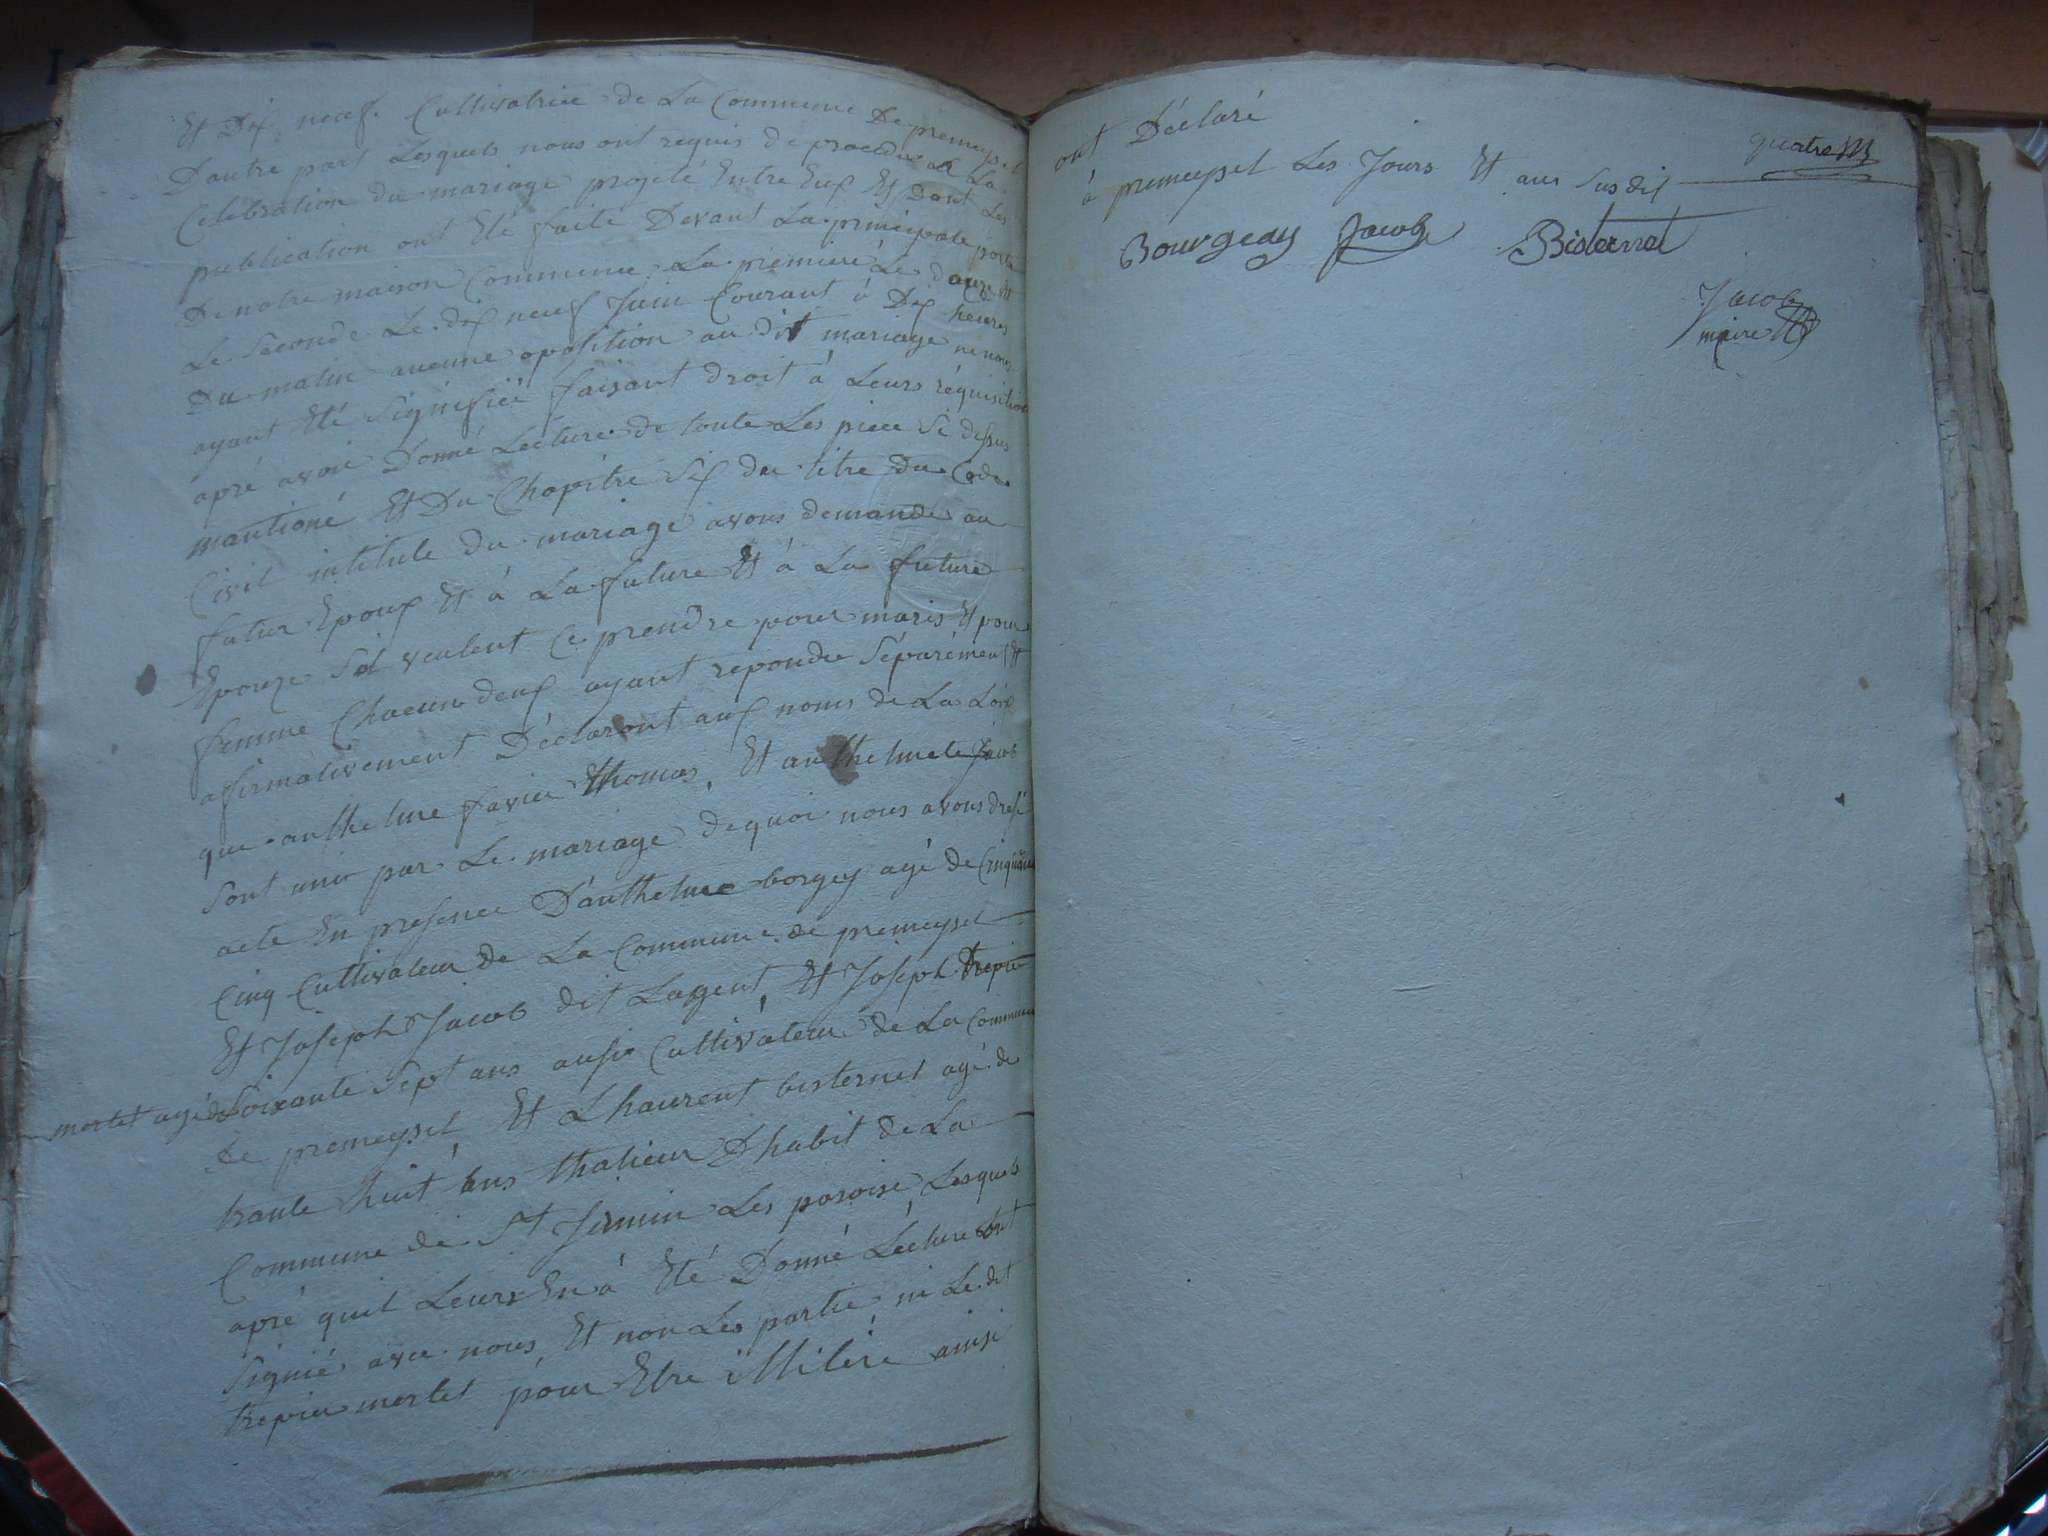 Et Dix neuf Cultivatrice de La Commune De premeysel
D'autre part Lesquels nous ont requis de procéder a La
Celebration du mariage projeté Entre Eux Et Dont Les
publication ont Eté faite Devant La principale porte
De notre maison Commune La premiere Le douze Et
Le Seconde Le dix neuf Juin Courant à Dix heures
Du matin aucune oposition au dit mariage ne nous
ayant Eté Signifiée faisant droit à Leurs réquisition
apré avoir Donné Lecture de toute Les piece Si dessus
mantioné Et Du Chapitre Six du titre Du Code
Civil intitule du mariage avons demande au
futur Epoux Et à La future Et à La future
Epouze Sil veulent Ce prendre pour maris Et pour
femme Chacun deux ayant repondu Séparément Et
afirmativement Déclaront aux noms de La Loix
que anthelme favier Thomas, Et anthelmete Jacob
Sont unir par Le mariage dequoi nous avons dresé
acte En presence D'anthelme borgey agé de Cinquante
Cinq Cultivateur de La Commune de premeysel
Et Joseph Jacob dit Lagent, Et Joseph Trepier
mortet agé de Soixante Sept ans ausi Cultivateur de La Commune
de premeysel Et Lhaurent bisternet agé de
trante huit ans thalieur D'habit de La
Commune de St Jermin Les paroise, Lesquels
apré quil Leurs En à Eté Donné Lecture ont
Signié avec nous Et non Les partie ni Le dit
trepier mortet pour Etre illitéré ainsi
ont Déclaré
quatre
à premeysel Les Jours Et ans Susdit
Bourgeay Jacob Bisternet
Jacob
maire